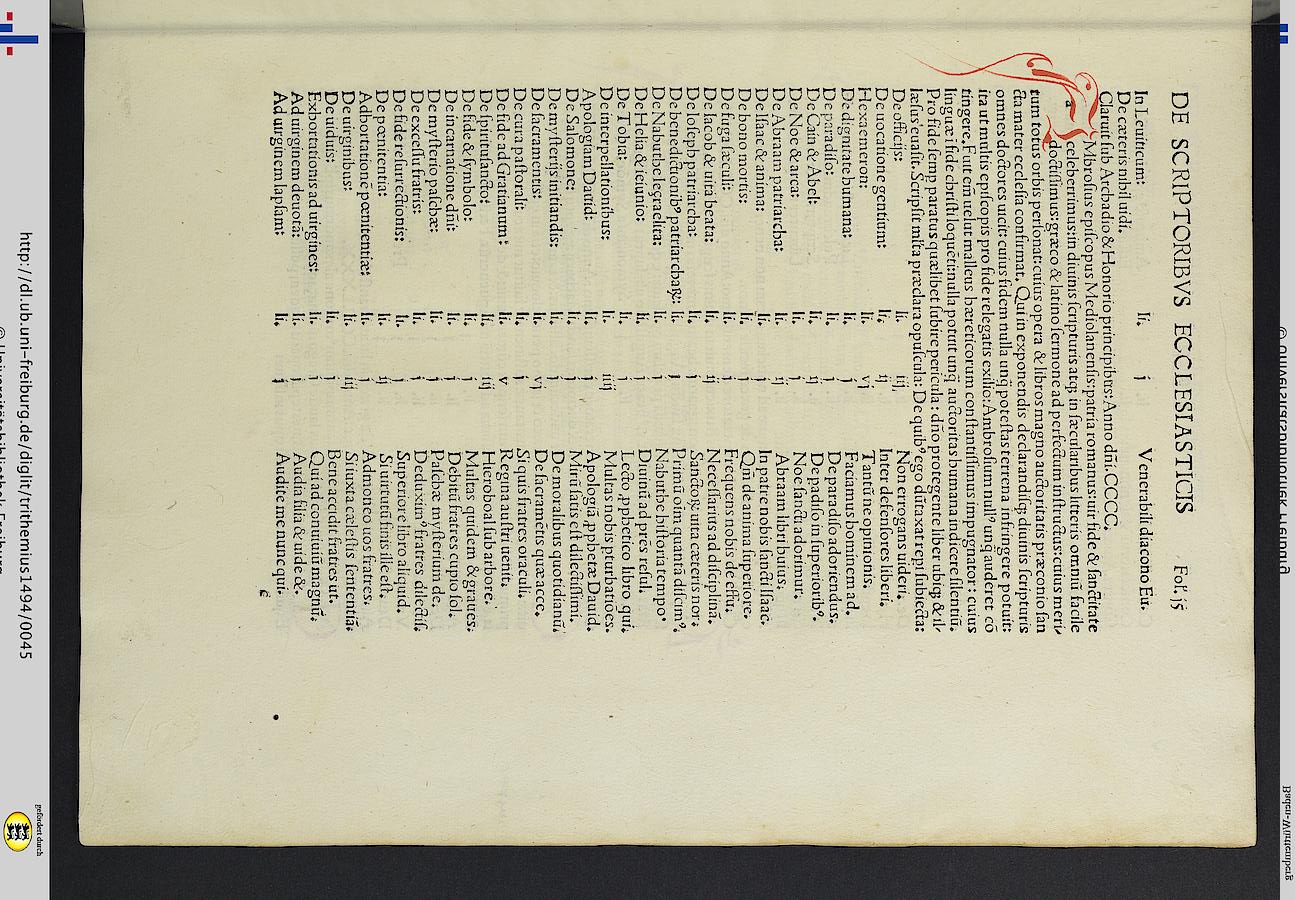 DE SCRIPTORIBVS ECCLESIASTICIS Fol. is
In Leuiticum: li. j Venerabili diacono Eu.
De cæteris nihil uidi.
Claruit sub Archadio & Honorio principibus: Anno dñi. CCCC.
AMbrosius episcopus Mediolanensis: patria romanus: uir fide & sanctitate
celeberrimus: in diuinis scripturis atq; in sæcularibus litteris omniũ facile
doctissimus: græco & latino sermone ad perfectum instructus: cuius meri/
tum totus orbis personat: cuius opera & libros magno auctoritatis præconio san
cta mater ecclesia confirmat. Qui in exponendis declarandisq; diuinis scripturis
omnes doctores uicit: cuius fidem nulla unq̃ potestas terrena infringere potuit:
ita ut multis episcopis pro fide relegatis exilio: Ambrosium nullꝰ unq̃ auderet cõ
tingere. Fuit em̃ uelut malleus hæreticorum constantissimus impugnator: cuius
linguæ i fide christi loquẽti: nulla potuit unq̃ auctoritas humana indicere silentiũ.
Pro fide semp paratus quælibet subire pericula: dño protegente liber ubiq; & il/
læsus euasit. Scripsit mĩta præclara opuscula: De quibꝰ ego dũtaxat repi subiecta:
De officijs: li. iij. Non errogans uideri.
De uocatione gentium: li. ij Inter defensores liberi.
Hexaemeron: li. vj Tantũ ne opinionis.
De dignitate humana: li. j Faciamus hominem ad.
De paradiso: li. j De paradiso adoriendus.
De Cain & Abel: li. ij De padiso in superioribꝰ.
De Noe & arca: li. j Noe sancti adorimur.
De Abraam patriarcha: li. ij Abraam libri huius.
De Isaac & anima: li. j In patre nobis sancti Isaac.
De bono mortis: li. j Qm̃ de anima superiore.
De fuga sæculi: li. j Frequens nobis de effu.
De Iacob & uita beata: li. ij Necessarius ad disciplinã.
De Ioseph patriarcha: li. j Sanctoꝝ uita cæteris nor.
De benedictionibꝰ patriarchaꝝ: li. j Primũ oim quantã discimꝰ.
De Nabuthe Iezraelita: li. j Nabuthe historia tempoꝰ
De Helia & ieiunio: li. j Diuinũ ad pr̃es resul.
De Tobia: li. j Lecto ꝓphetico libro qui.
De interpellationibus: li. iiij Multas nobis pturbatiões.
Apologiam Dauid: li. j Apologiã ꝓphetæ Dauid.
De Salomone: li. j Mirũ satis est dilectissimi.
De mysterijs initiandis: li. j De moralibus quotidianũ.
De sacramentis: li. vj De sacramẽtis quæ acce.
De cura pastorali: li. j Si quis fratres oraculi.
De fide ad Gratianum: li. v Regina austri uenit.
De spiritu sancto: li. iij Hieroboal sub arbore.
De fide & symbolo: li. j Multas quidem & graues.
De incarnatione dñi: li. j Debitũ fratres cupio sol.
De mysterio paschæ: li. j Paschæ mysterium de.
De excessu fratris: li. j Deduximꝰ fratres dilectis.
De fide resurrectionis: li. j Superiore libro aliquid.
De pœnitentia: li. ij Si uirtutũ finis ille est.
Adhortationẽ pœnitentiæ: li. j Admoneo uos fratres.
De uirginibus: li. iij Si iuxta cælestis sententiã.
De uiduis: li. j Bene accidit fratres ut.
Exhortationis ad uirgines: li. j Qui ad conuiuiũ magnũ.
Ad uirginem deuotã: li. j Audia filia & uide &.
Ad uirginem lapsam: li. j Audite me nunc qui.
c
http://dl.ub.uni-freiburg.de/diglit/trithemius1494/0045
© Universitätsbibliothek Freiburg
gefördert durch
Baden-Württemberg